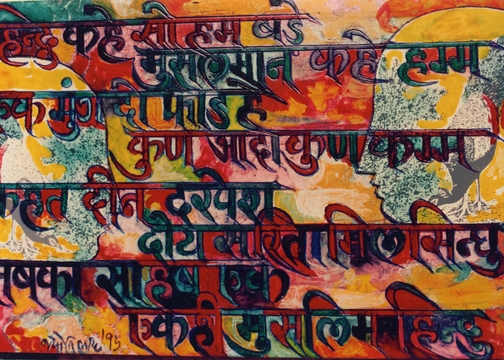 हिन्दु कहे सो हम बडे
मुसलमान कहे हम्म
एक मुंग दो फाड है
कुण जादा कुण कम्म
कहत दीन दरवेश
दोय सरिता मिल सिन्धु
सबका साहब एक
एक ही मुसलिम हिन्दु
'95